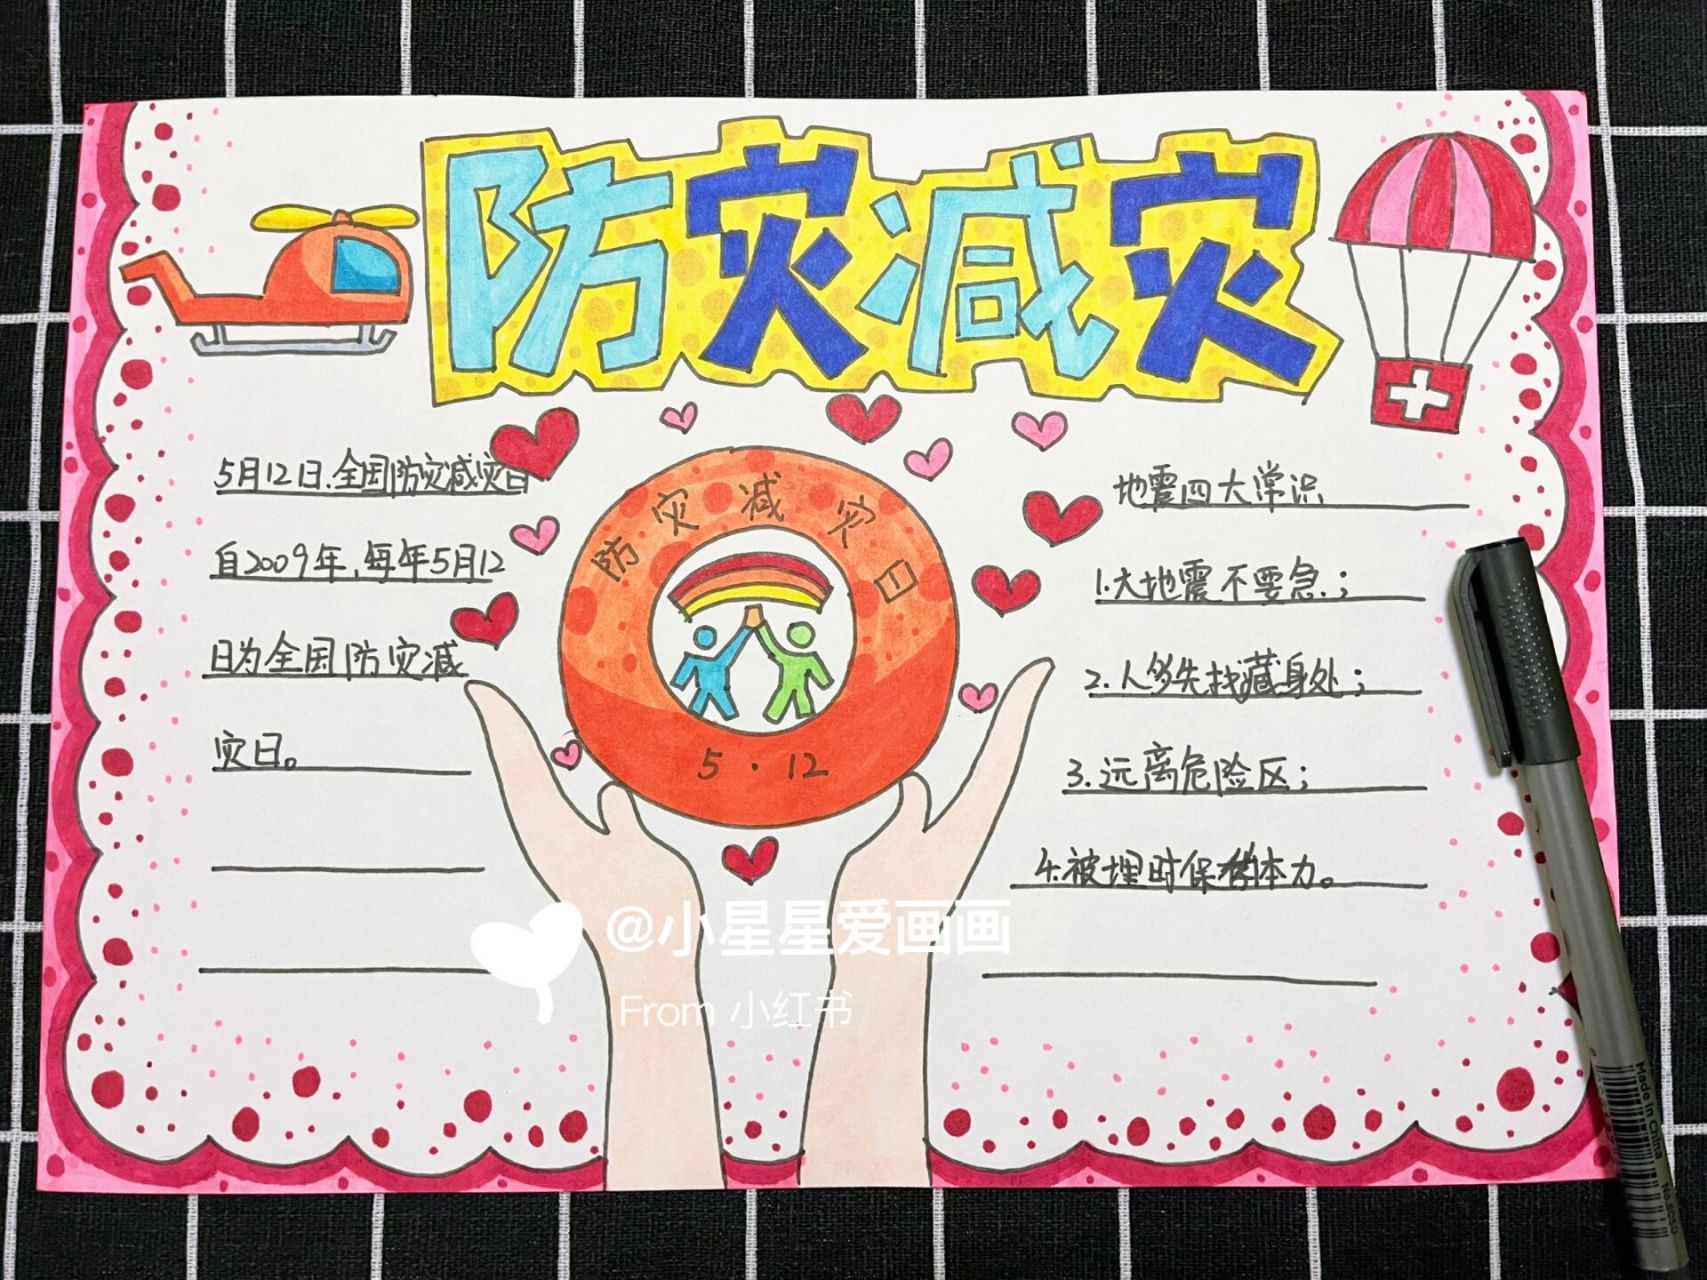 防灾减灾
5月12日.全国防灾减灾日
自2009年,每年5月12
日为全国防灾减
灾日。
防灾减灾日
5·12
地震四大常识
1.大地震不要急.;
2.人多先找藏身处;
3.远离危险区;
4.被埋时保存体力。
@小星星爱画画
From 小红书
Made in China